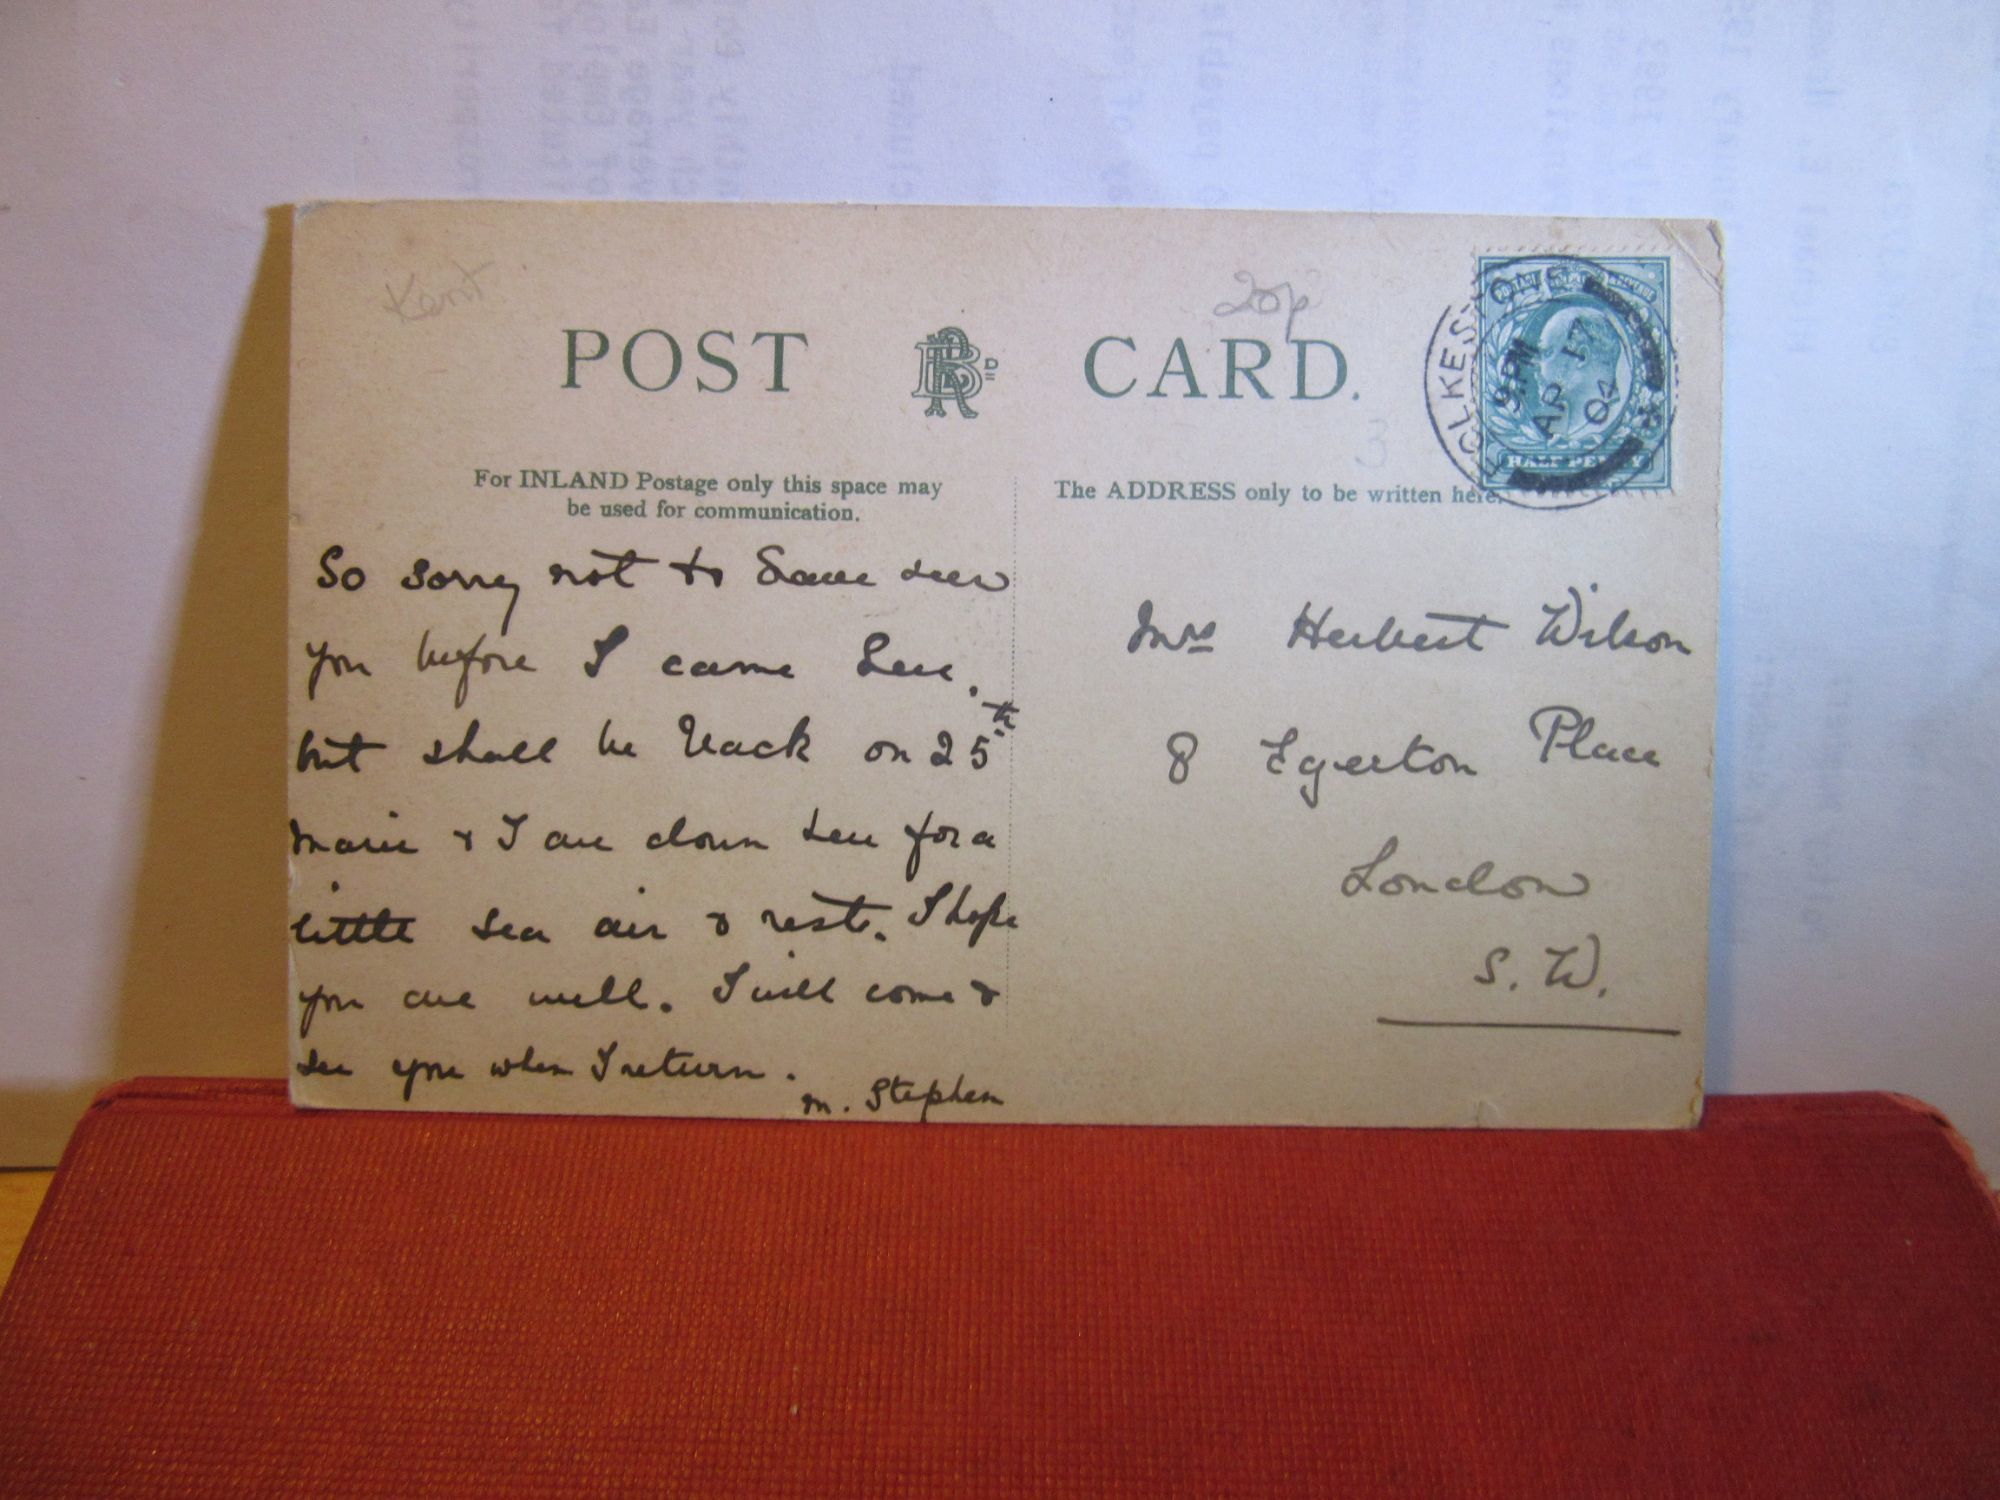 Kent
20p
POST BRD CARD.
3
FOLKESTONE
9. PM
AP 17
04
HALF PENNY
For INLAND Postage only this space may
be used for communication.
The ADDRESS only to be written here.
So sorry not to have seen
you before I came here.
but shall be back on 25th
Marie & I are down here for a
little sea air & rest. I hope
you are well. I will come &
see you when I return.
M. Stephen
Mrs Herbert Wilson
8 Egerton Place
London
S. W.